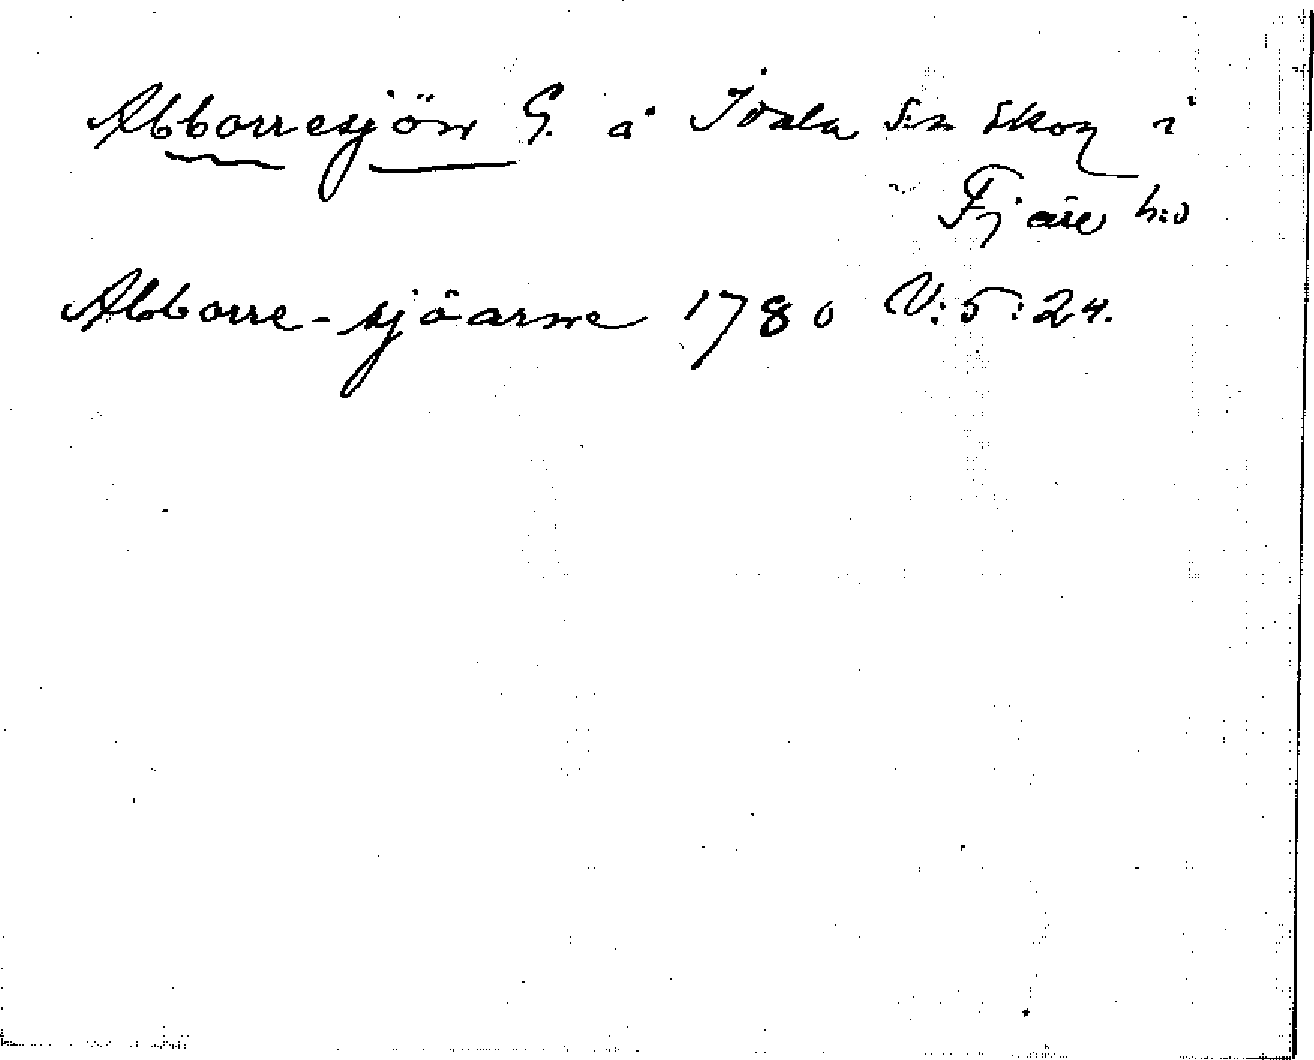 Abborresjön G. å Idala s:n skog i
Fjäre h:d
Abborre-sjöarne 1780 V:5:24.